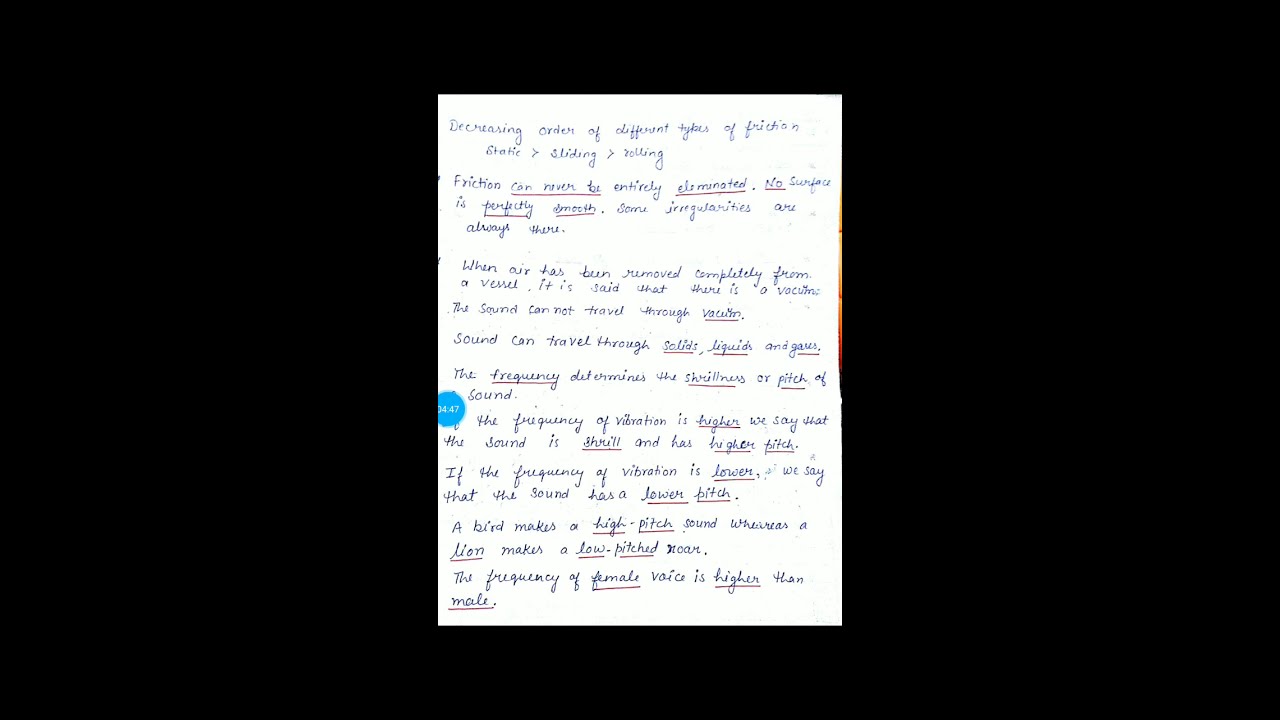 Decreasing order of different types of friction
Static > sliding > rolling
Friction can never be entirely eleminated. No surface
is perfectly smooth. Some irregularities are
always there.
When air has been removed completely from
a vessel, it is said that there is a vacum.
The sound can not travel through vacum.
Sound can travel through solids, liquids and gases.
The frequency determines the shrillness or pitch of
sound.
04:47
the frequency of vibration is higher we say that
the sound is shrill and has higher pitch.
If the frequency of vibration is lower, we say
that the sound has a lower pitch.
A bird makes a high-pitch sound wheareas a
lion makes a low-pitched roar.
The frequency of female voice is higher than
male.